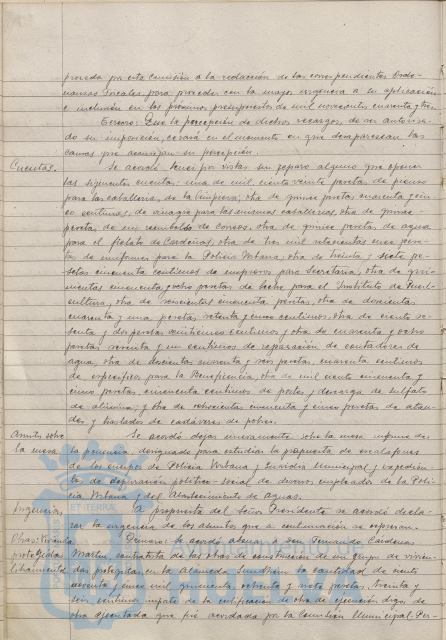 proceda por esta Comisión a la redacción de las correspondientes Orde-
nanzas fiscales para proceder con la mayor urgencia a su aplicación
e inclusión en los próximos presupuestos de mil novecientos cuarenta y tres.
Tercero: Que la percepción de dichos recargos, de ser autoriza-
do su imposición, cesará en el momento en que desaparezcan las
causas que aconsejan su percepción.
Cuentas. Se acordó tener por vistas sin reparo alguno que oponer
las siguientes cuentas: una de mil ciento veinte pesetas, de pienso
para las caballerías de la limpieza; otra de quince pesetas cuarenta y cin-
co centimos, de vinagre para las mismas caballerías, otra de quince
pesetas, de un reembolso de correos, otra de quince pesetas, de agua
para el fielato de Cardenas, otra de tres mil setecientas once pese-
tas de uniformes para la Policía Urbana, otra de treinta y siete pe-
setas cincuenta centimos de impresos para Secretaria, otra de quin-
ientas cincuenta y ocho pesetas de leche para el Instituto de Pueri-
cultura, otra de seiscientas cincuenta pesetas, otra de doscientas
cuarenta y una pesetas, setenta y cinco centimos, otra de ciento se-
senta y dos pesetas veinticinco centimos y otra de cuarenta y ocho
pesetas, noventa y un centimos de reparación de contadores de
agua, otra de doscientas noventa y seis pesetas, cuarenta centimos
de específicos para la Beneficencia, otra de mil ciento cincuenta y
cinco pesetas, cincuenta centimos de portes y descarga de sulfato
de alúmina; y otra de ochocientas cincuenta y cinco pesetas de ataú-
des y traslados de cadáveres de pobres.
Asuntos sobre Se acordó dejar nuevamente sobre la mesa informe de
la mesa la ponencia designada para estudiar la propuesta de escalafones
de los cuerpos de Policía Urbana y Guardia Municipal y expedien-
tes de depuración político-social de diversos empleados de la Poli-
cía Urbana y del Abastecimiento de aguas.
Urgencias. A propuesta del Señor Presidente se acordó decla-
rar la urgencia de los asuntos que a continuación se expresan.
Obras: Vivienda Primero: Se acordó abonar a Don Fernando Cárdenas
protegida Martín, contratista de las obras de construcción de un grupo de vivien-
das protegidas en la Alameda la cantidad de ciento
noventa y cinco mil quinientas ochenta y siete pesetas, treinta y
seis centimos importe de la certificación de obra de ejecución
obra ejecutada que fué acordada por la Comisión Municipal Per-